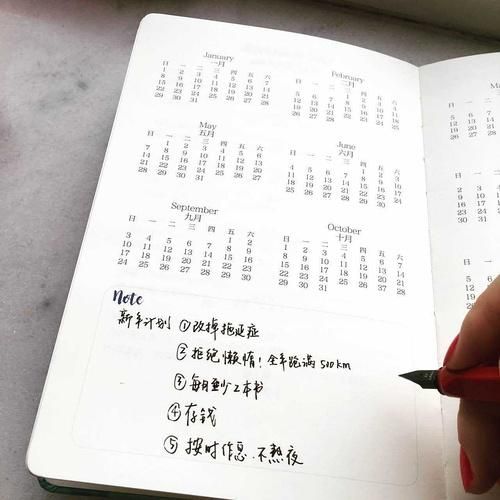 January
一月
日 一 二 三 四 五 六
1 2 3 4 5 6 7
8 9 10 11 12 13 14
15 16 17 18 19 20 21
22 23 24 25 26 27 28
29 30 31
February
二月
日 一 二 三 四 五 六
1 2 3 4
5 6 7 8 9 10 11
12 13 14 15 16 17 18
19 20 21 22 23 24 25
26 27 28
May
五月
日 一 二 三 四 五 六
1 2 3 4 5 6
7 8 9 10 11 12 13
14 15 16 17 18 19 20
21 22 23 24 25 26 27
28 29 30 31
June
六月
日 一 二 三 四 五 六
1 2 3
4 5 6 7 8 9 10
11 12 13 14 15 16 17
18 19 20 21 22 23 24
25 26 27 28 29 30
September
九月
日 一 二 三 四 五 六
1 2
3 4 5 6 7 8 9
10 11 12 13 14 15 16
17 18 19 20 21 22 23
24 25 26 27 28 29 30
October
十月
日 一 二 三 四 五 六
1 2 3 4 5 6 7
8 9 10 11 12 13 14
15 16 17 18 19 20 21
22 23 24 25 26 27 28
29 30 31
Note
新年计划 ①改掉拖延症
②拒绝懒惰！全年跑满500km
③每月至少2本书
④存钱
⑤按时作息.不熬夜